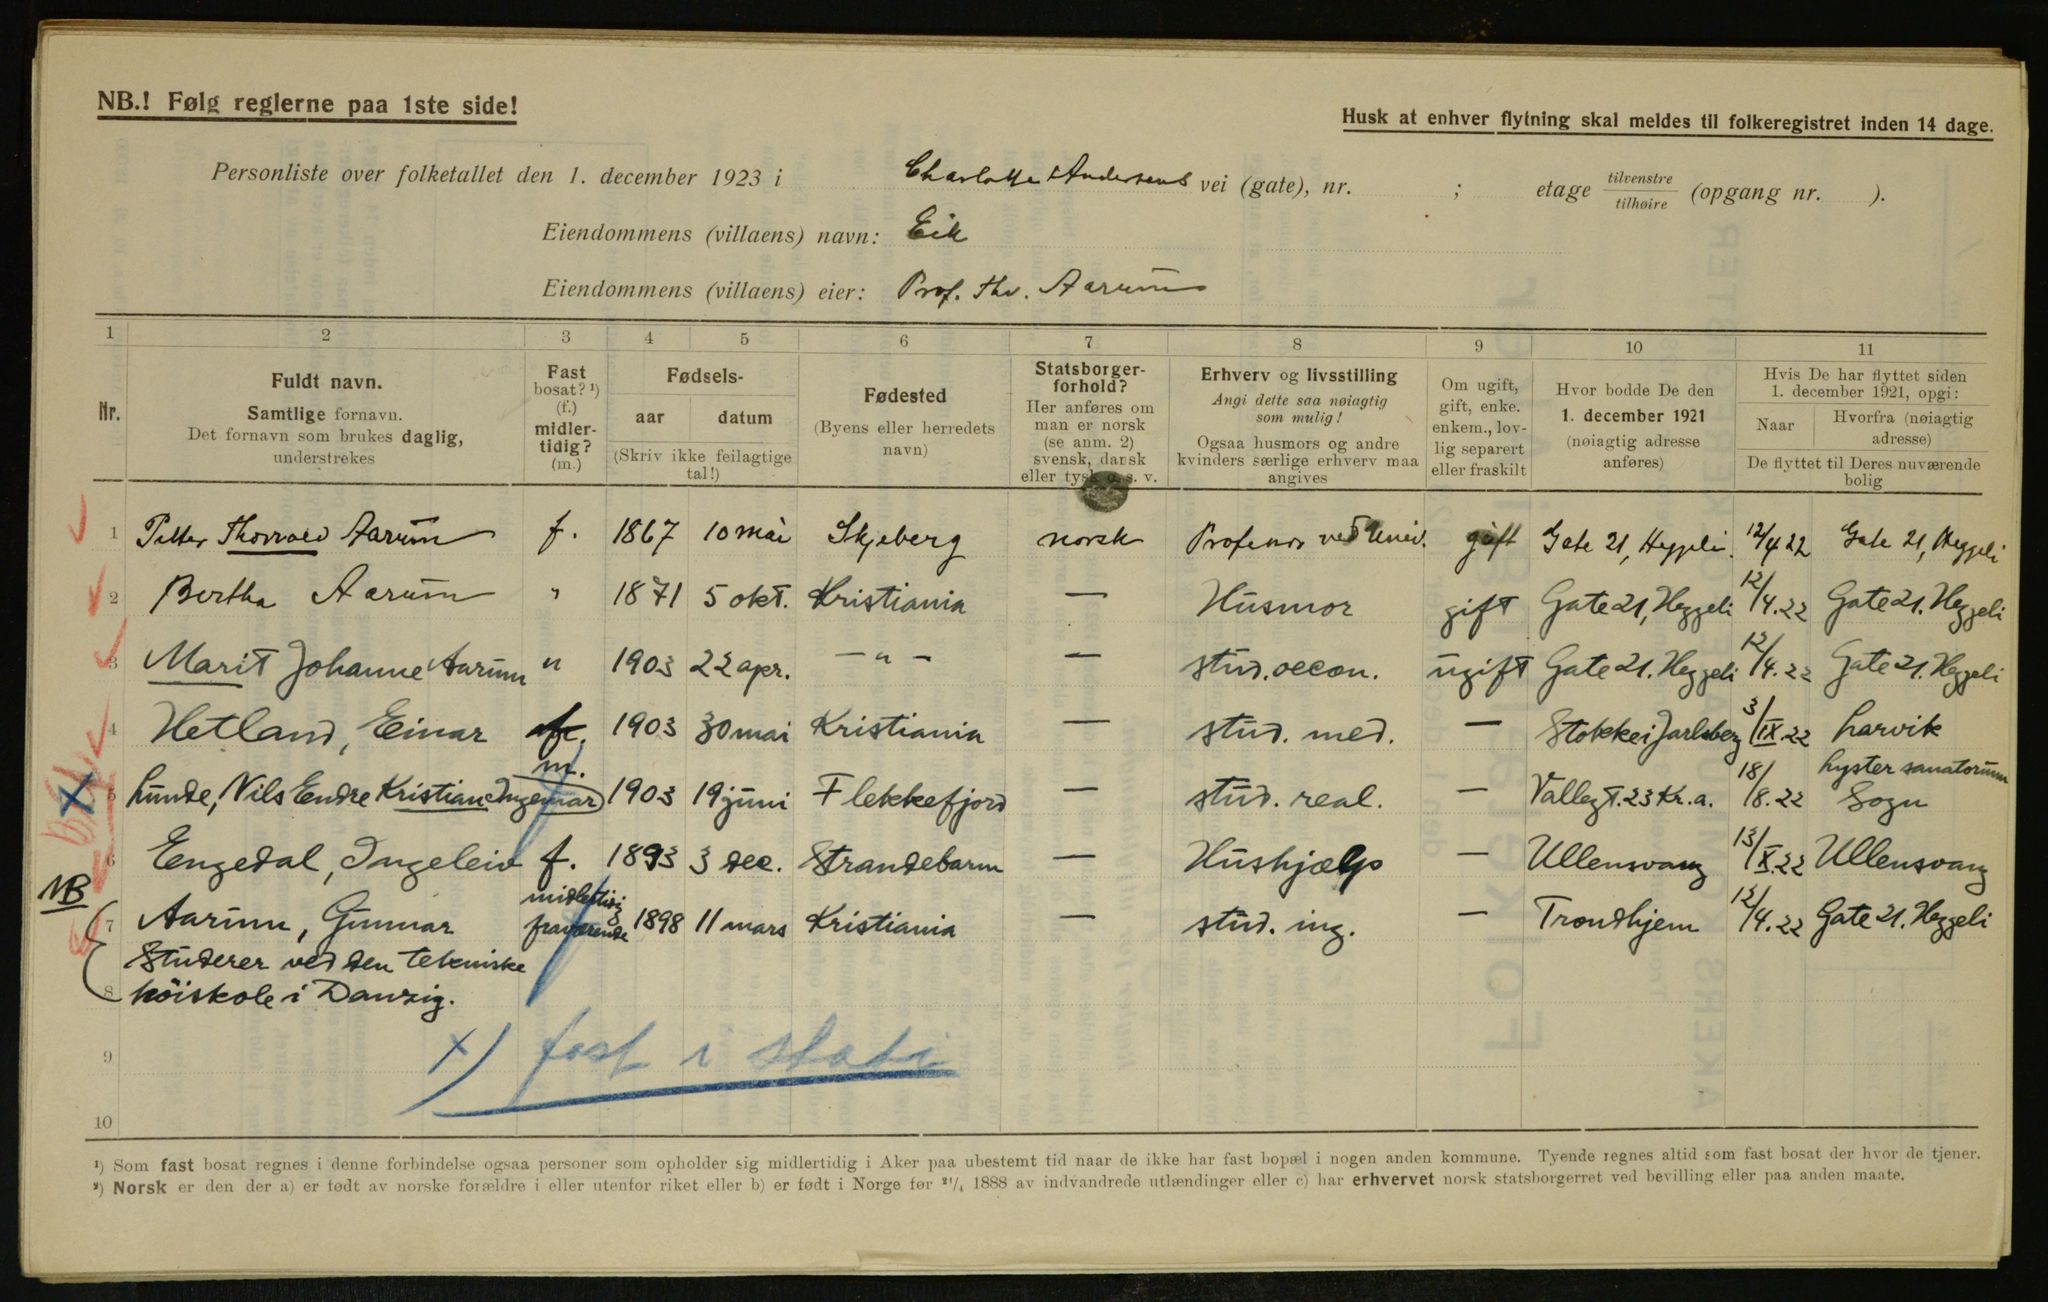 NB.! Følg reglerne paa 1ste side!
Husk at enhver flytning skal meldes til folkeregistret inden 14 dage.
Personliste over folketallet den 1. december 1923 i Charlotte Andersens vei (gate), nr. ; etage tilvenstre / tilhøire (opgang nr. ).
Eiendommens (villaens) navn: Eik
Eiendommens (villaens) eier: Prof. Thv. Aarum
1 2 3 4 5 6 7 8 9 10 11
Nr.
Fuldt navn.
Samtlige fornavn.
Det fornavn som brukes daglig,
understrekes
Fast
bosat? ¹)
(f.)
midler-
tidig?
(m.)
Fødsels-
aar datum
(Skriv ikke feilagtige
tal!)
Fødested
(Byens eller herredets
navn)
Statsborger-
forhold?
Her anføres om
man er norsk
(se anm. 2)
svensk, dansk
eller tysk o. s. v.
Erhverv og livsstilling
Angi dette saa nøiagtig
som mulig!
Ogsaa husmors og andre
kvinders særlige erhverv maa
angives
Om ugift,
gift, enke.
enkem., lov-
lig separert
eller fraskilt
Hvor bodde De den
1. december 1921
(nøiagtig adresse
anføres)
Hvis De har flyttet siden
1. december 1921, opgi:
Naar Hvorfra (nøiagtig
adresse)
De flyttet til Deres nuværende
bolig
1 Petter Thorvald Aarum f. 1867 10 mai Skjeberg norsk Professor ved Univ. gift Gate 21, Heggeli. 12/4 22 Gate 21, Heggeli
2 Bertha Aarum " 1871 5 okt. Kristiania — Husmor gift Gate 21, Heggeli 12/4.22 Gate 21. Heggeli
3 Marit Johanne Aarum " 1903 22 apr. — " — — stud. oecon. ugift Gate 21. Heggeli 12/4.22 Gate 21. Heggeli
4 Hetland, Einar m. 1903 30 mai Kristiania — stud. med. — Stokke i Jarlsberg 3/IX.22 Larvik
5 Lunde, Nils Endre Kristian Ingemar 1903 19 juni Flekkefjord — stud. real. — Vallegt. 23 Kr.a. 18/8.22 Lyster sanatorium
Sogn
6 Eengedal, Ingeleiv f. 1893 3 dec. Strandebarm — Hushjælp — Ullensvang 13/X.22 Ullensvang
NB
7 Aarum, Gunnar midlertidig
fraværende 1898 11 mars Kristiania — stud. ing. — Trondhjem 12/4.22 Gate 21. Heggeli
Studerer ved den tekniske
8 høiskole i Danzig.
9 x) fast i
10
¹) Som fast bosat regnes i denne forbindelse ogsaa personer som opholder sig midlertidig i Aker paa ubestemt tid naar de ikke har fast bopæl i nogen anden kommune. Tyende regnes altid som fast bosat der hvor de tjener.
²) Norsk er den der a) er født av norske forældre i eller utenfor riket eller b) er født i Norge før ²¹/₄ 1888 av indvandrede utlændinger eller c) har erhvervet norsk statsborgerret ved bevilling eller paa anden maate.